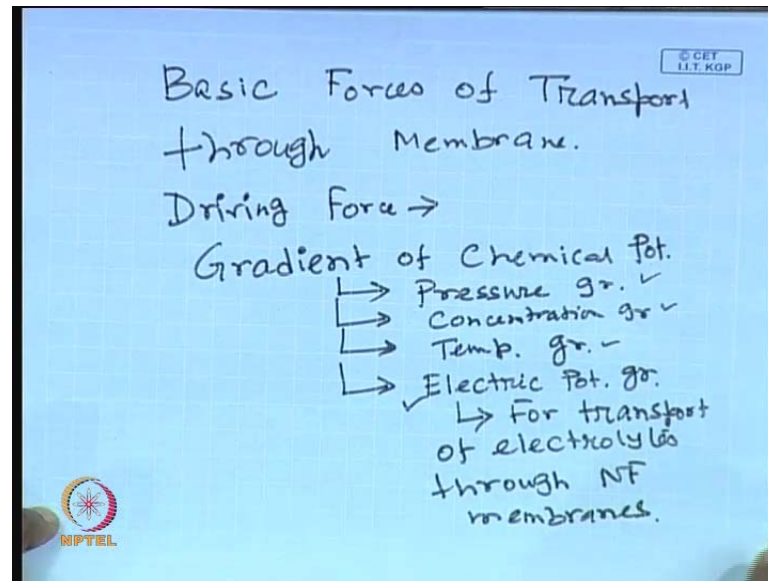 © CET
I.I.T. KGP
Basic Forces of Transport
through Membrane.
Driving Force →
Gradient of Chemical Pot.
↳ Pressure gr. ✓
↳ Concentration gr ✓
↳ Temp. gr. ✓
↳ Electric Pot. gr.
✓ ↳ For transport
of electrolytes
through NF
membranes.
NPTEL